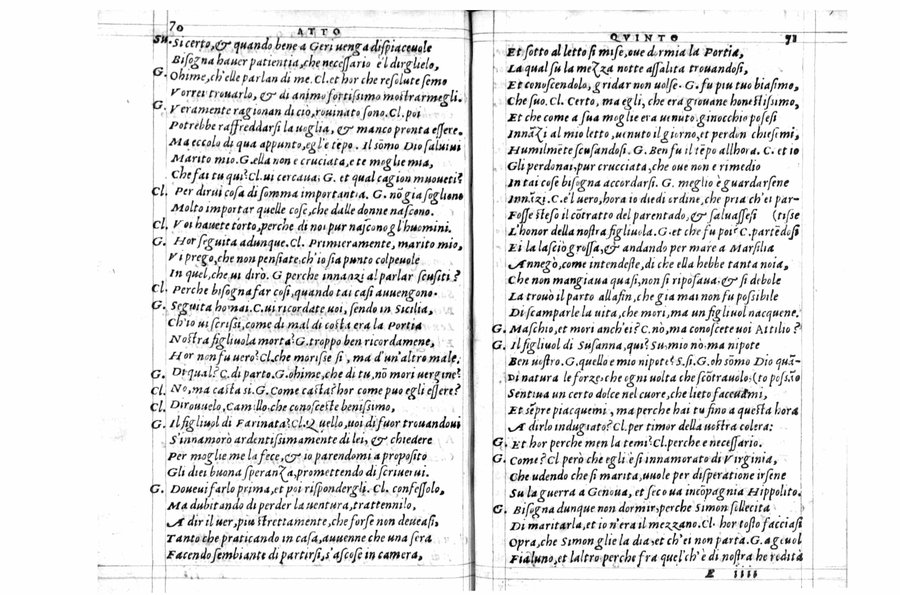 70
ATTO
Su. Si certo, & quando bene a Geri uenga dispiaceuole
Bisogna hauer patientia, che necessario è'l dirglielo,
G. Ohime, ch'elle parlan di me. Cl. et hor che resolute semo
Vorrei trouarlo, & di animo fortissimo mostrarmegli.
G. Veramente ragionan di ciò, rouinato sono. Cl. poi
Potrebbe raffreddarsi la uoglia, & manco pronta essere.
Ma eccolo di qua appunto, egl'è tēpo. Il sōmo Dio saluiui
Marito mio. G. ella non è cruciata, e te moglie mia,
Che fai tu qui? Cl. ui cercaua; G. et qual cagion muoueti?
Cl. Per dirui cosa di somma importantia. G. nō gia sogliono
Molto importar quelle cose, che dalle donne nascono.
Cl. Voi hauete torto, perche di noi pur nascono gl'huomini.
G. Hor seguita adunque. Cl. Primieramente, marito mio,
Vi prego, che non pensiate, ch'io sia punto colpeuole
In quel, che ui dirò. G perche innanzi al parlar scusiti?
Cl. Perche bisogna far cosi, quando tai casi auuengono.
G. Seguita homai. C. ui ricordate uoi, sendo in Sicilia,
Ch'io ui scrissi, come di mal di costa era la Portia
Nostra figliuola morta? G. troppo ben ricordamene,
Hor non fu uero? Cl. che morisse si, ma d'un'altro male.
G. Di qual? C. di parto. G. ohime, che di tu, nō mori uergine?
Cl. No, ma casta si. G. Come casta? hor come puo egli essere?
Cl. Dirouuelo, Camillo che conosceste benissimo,
G. Il figliuol di Farinata? Cl. Quello, uoi di fuor trouandoui
S'innamorò ardentissimamente di lei, & chiedere
Per moglie me la fece, & io parendomi a proposito
Gli diei buona speranza, promettendo di scriuerui.
G. Doueui farlo prima, et poi rispondergli. Cl. confessolo,
Ma dubitando di perder la uentura, trattennilo,
A dir il uer, piu strettamente, che forse non doueasi,
Tanto che praticando in casa, auuenne che una sera
Facendo sembiante di partirsi, s'ascose in camera,
QVINTO
71
Et sotto al letto si mise, oue dormia la Portia,
La qual su la mezza notte assalita trouandosi,
Et conoscendolo, gridar non uolse. G. fu piu tuo biasimo,
Che suo. Cl. Certo, ma egli, che era giouane honestissimo,
Et che come a sua moglie era uenuto, ginocchio posesi
Innāzi al mio letto, uenuto il giorno, et perdon chiesemi,
Humilmēte scusandosi. G. Ben fu il tēpo allhora. C. et io
Gli perdonai, pur crucciata, che oue non è rimedio
In tai cose bisogna accordarsi. G. meglio è guardarsene
Innāzi. C. è'l uero, hora io diedi ordine, che pria ch'ei par-
Fosse steso il cōtratto del parentado, & saluassesi (tisse
L'honor della nostra figliuola. G. et che fu poi? C. partēdosi
Ei la lasciò grossa, & andando per mare a Marsilia
Annegò, come intendeste, di che ella hebbe tanta noia,
Che non mangiaua quasi, non si riposaua, & si debole
La trouò il parto alla fin, che gia mai non fu possibile
Di scamparle la uita, che morì, ma un figliuol nacquene.
G. Maschio, et mori anch'ei? C. nò, ma conoscete uoi Attilio?
G. Il figliuol di Susanna, qui? Su. mio nò, ma nipote
Ben uostro. G. quello è mio nipote? S. si. G. oh sōmo Dio quā-
Di natura le forze, che ogni uolta che scōtrauolo, (to possāo
Sentiua un certo dolce nel cuore, che lieto faceuami,
Et sēpre piacquemi, ma perche hai tu fino a questa hora
A dirlo indugiato? Cl. per timor della uostra colera:
G. Et hor perche men la temi? Cl. perche è necessario.
G. Come? Cl però che egli è si innamorato di Virginia,
Che udendo che si marita, uuole per disperatione irsene
Su la guerra a Genoua, et seco ua incōpagnia Hippolito.
G. Bisogna dunque non dormir, perche Simon sollecita
Di maritarla, et io n'era il mezzano. Cl. hor tosto facciasi
Opra, che Simon glie la dia, et ch'ei non parta. G. ageuol
Fialuno, et laltro, perche fra quel ch'è di nostra heredità
E iiii